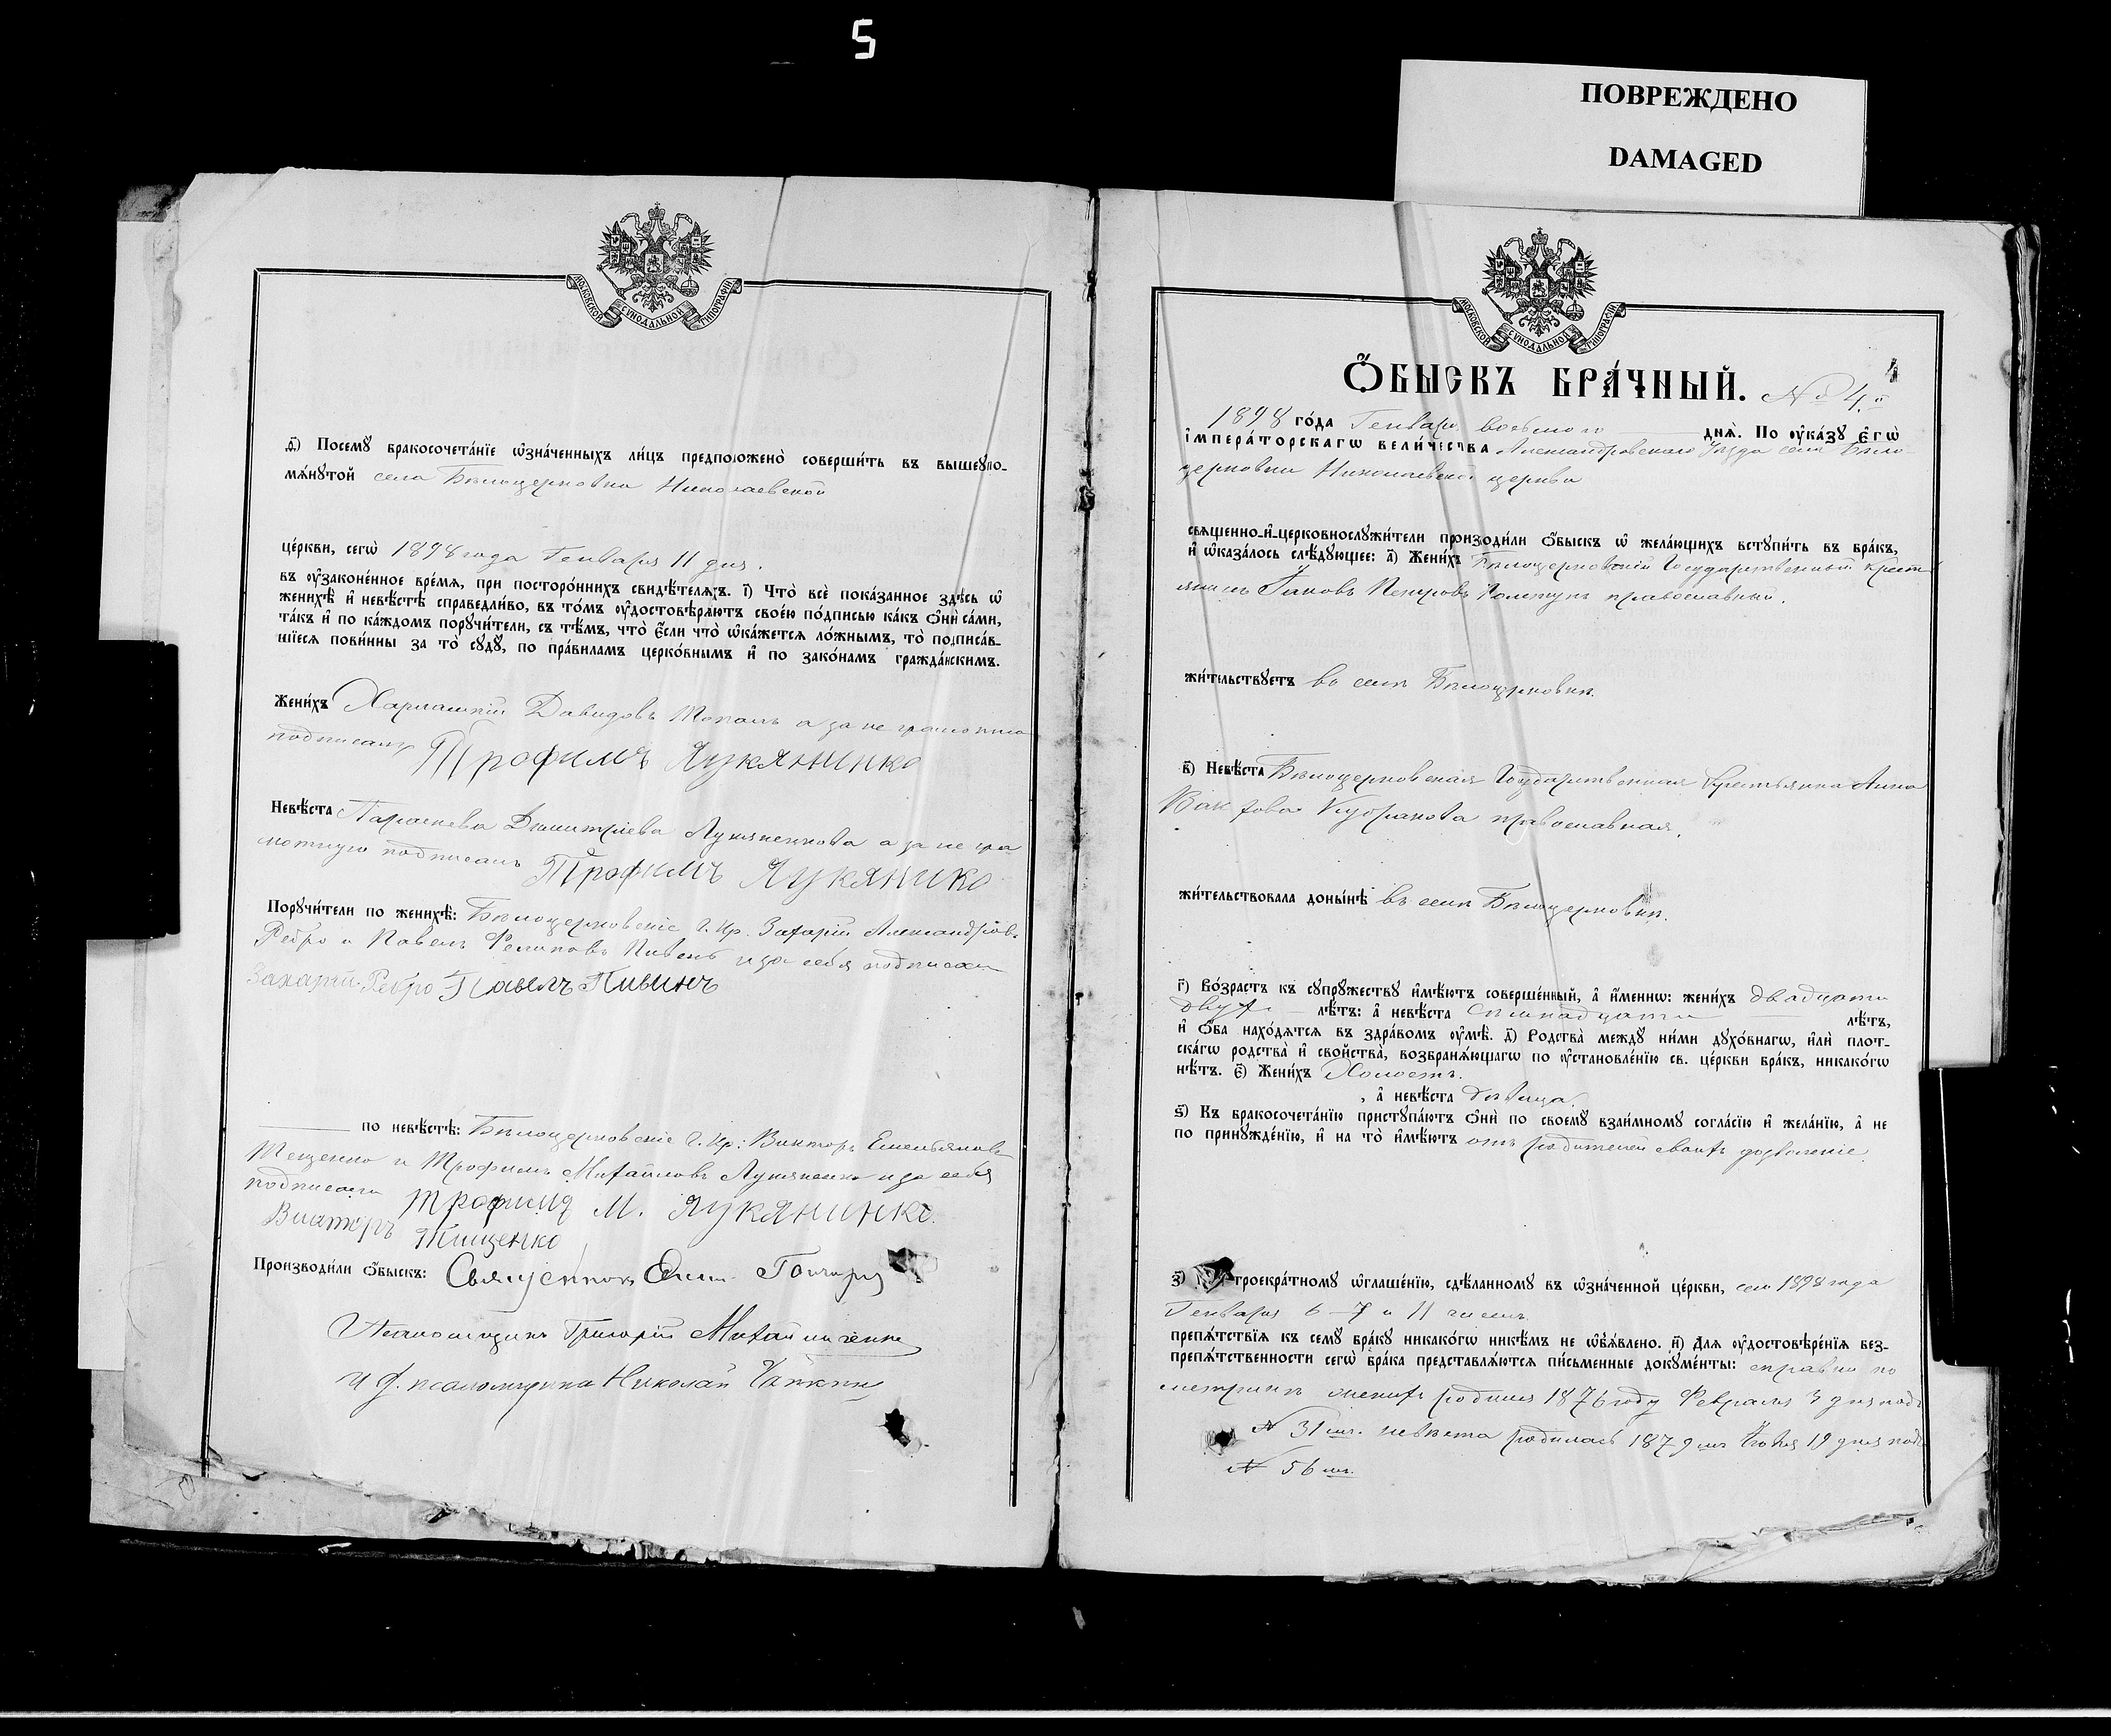 5
ПОВРЕЖДЕНО
DAMAGED
МОСКОВСКОЙ СѴНОДАЛЬНОЙ ТИПОГРАФІИ
Посему̀ бракосочета́нїе ѡ҆зна́ченныхъ ли́цъ предположено̀ соверши́ть въ вышеупо-
мѧ́нутой села Бѣлоцерковки Николаевской
це́ркви, сегѡ̀ 1898 года Генваря 11 дня.
въ ᲂу҆зако́ненное вре́мѧ, при посторо́ннихъ свидѣ́телѧхъ. і҃) Что̀ всѐ пока́занное здѣ́сь ѡ҆
женихѣ̀ и҆ невѣ́стѣ справедли́во, въ то́мъ ᲂу҆достовѣрѧ́ютъ свое́ю по́дписью ка́къ ѻ҆нѝ са́ми,
та́къ и҆ по ка́ждомъ поручи́тели, съ тѣ́мъ, что̀ є҆́сли что̀ ѡ҆ка́жется ло́жнымъ, то̀ подписа́в-
шїесѧ пови́нны за то̀ суду̀, по пра́виламъ церко́внымъ и҆ по зако́намъ гражда́нскимъ.
Жени́хъ Харлампій Давидовъ а за не грамотнаго
подписалъ Трофимъ Лукяненко
Невѣ́ста Параскева Димитріева Лукяненкова а за не гра
мотную подписалъ Трофимъ Лукянико
Поручи́тели по женихѣ̀: Бѣлоцерковскіе Г. Кр. Захарій Александровъ
Ребро и Павелъ Филиповъ Пивень и за себя подписали
Захарій Ребро Павелъ Пивинъ
по невѣ́стѣ: Бѣлоцерковскіе Г. Кр: Викторъ Емельяновъ
Тещенко и Трофимъ Михайловъ Лукяненко и за себя
подписали Трофимъ М. Лукяненко.
Викторъ Тищенко
Производи́ли ѻ҆́быскъ: Священникъ Гончаръ
Псаломщикъ Григорій Михайличенко
И д. псаломщика Николай
МОСКОВСКОЙ СѴНОДАЛЬНОЙ ТИПОГРАФІИ
4
Ѻ҆́БЫСКЪ БРА́ЧНЫЙ. № 4й
1898 го́да Генваря восьмого днѧ̀. По ᲂу҆ка́зу Є҆гѡ̀
і҆мпера́торскагѡ вели́чества Александровскаго Уѣзда села Бѣло
церковки Николаевской церкви
свѧщенно-и҆-церковнослужи́тели производи́ли ѻ҆́быскъ ѡ҆ жела́ющихъ вступи́ть въ бра́къ,
и҆ ѡ҆каза́лось слѣ́дующее: а҃) Жени́хъ Бѣлоцерковскій Государственный крестъ
янинъ Іаковъ Петровъ православный.
жи́тельствуетъ въ селѣ Бѣлоцерковкѣ.
в҃) Невѣ́ста Бѣлоцерковская Государственная Крестьянка Анна
православная.
жи́тельствовала доны́нѣ въ селѣ Бѣлоцерковкѣ.
г҃) Во́зрастъ къ супру́жеству и҆мѣ́ютъ соверше́нный, а҆ и҆́меннѡ: жени́хъ двадцати
двухъ лѣ́тъ: а҆ невѣ́ста семнадцати лѣ́тъ,
и҆ ѻ҆́ба нахо́дѧтсѧ въ здра́вомъ ᲂу҆мѣ̀. д҃) Родства̀ между ни́ми духо́внагѡ, и҆лѝ пло́т-
скагѡ родства̀ и҆ свойства̀, возбранѧ́ющагѡ по ᲂу҆становле́нїю св. це́ркви бра́къ, никако́гѡ
нѣ́тъ. є҃) Жени́хъ Холостъ.
, а҆ невѣ́ста дѣвица.
ѕ҃) Къ бракосочета́нїю приступа́ютъ ѻ҆нѝ по своему̀ взаи́мному согла́сїю и҆ жела́нїю, а҆ не
по принужде́нїю, и҆ на то̀ и҆мѣ́ютъ отъ родителей своихъ дозволеніе.
з҃) троекра́тному ѡ҆глаше́нїю, сдѣ́ланному въ ѡ҆зна́ченной це́ркви, сего 1898 года
Генваря 6–7 и 11 числъ
препѧ́тствїѧ къ сему̀ бра́ку никако́гѡ никѣ́мъ не ѡ҆б̾ѧ́влено. и҃) Длѧ ᲂу҆достовѣре́нїѧ без-
препѧ́тственности сегѡ̀ бра́ка представлѧ́ются пи́сьменные докуме́нты: справки по
метрикѣ женихъ родился 1876 году Февраля 3 дня подъ
№ 31 мъ. невѣста родилась 1879 мъ 19 дня подъ
№ 56 мъ.